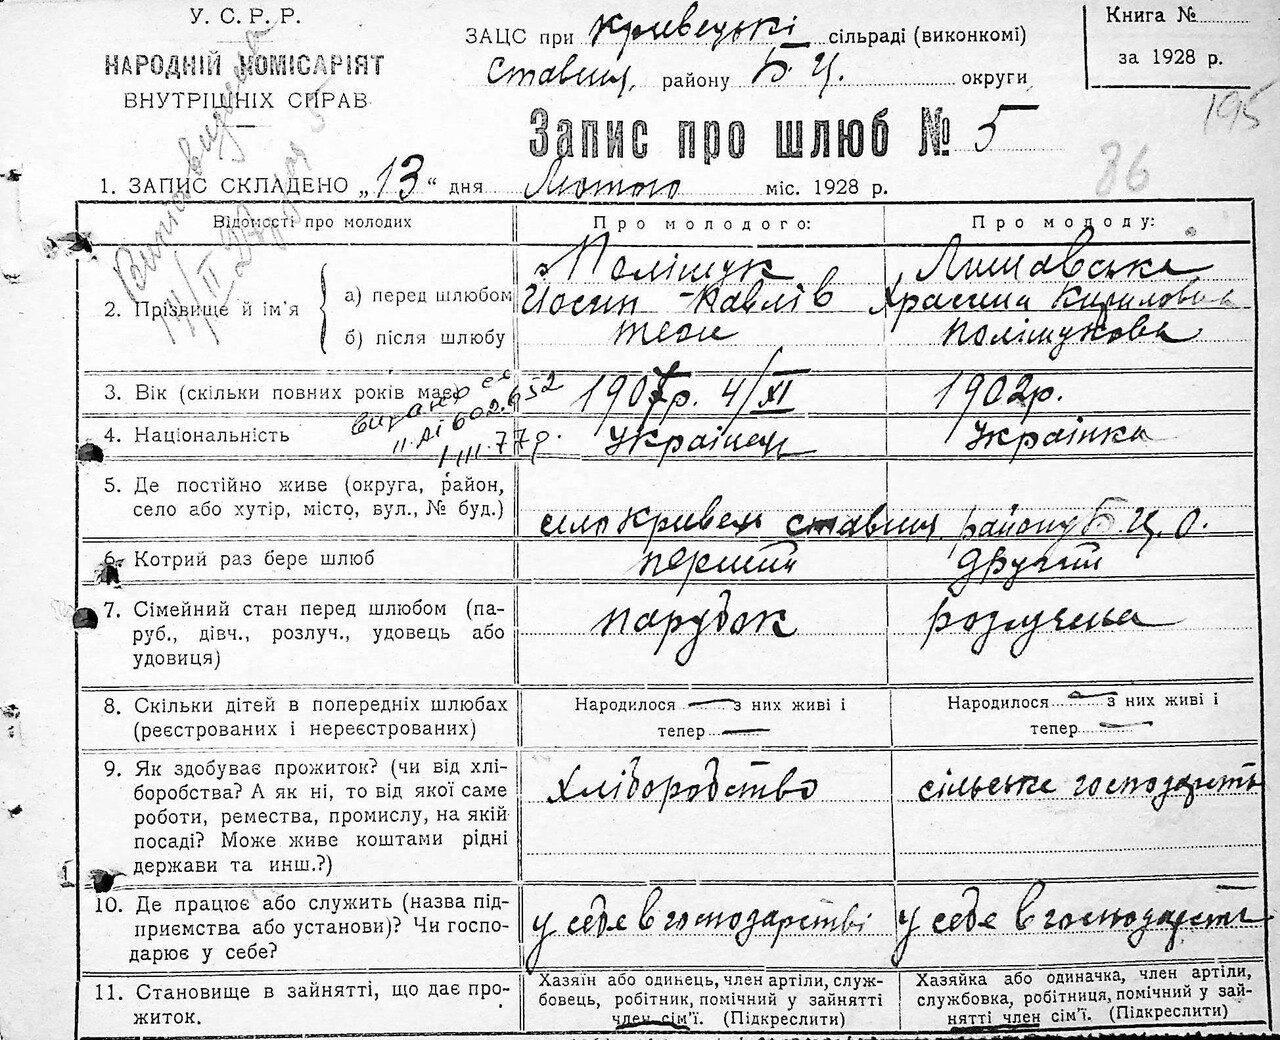 У. С. Р. Р.
НАРОДНІЙ КОМІСАРІЯТ
ВНУТРІШНІХ СПРАВ
ЗАЦС при Кривецькі сільраді (виконкомі)
Ставищ. району Б. Ц. округи
Книга №
за 1928 р.
195
Запис про шлюб № 5
86
1. ЗАПИС СКЛАДЕНО „13“ дня Лютого міс. 1928 р.
Відомості про молодих
Про молодого:
Про молоду:
2. Прізвище й ім'я
а) перед шлюбом
б) після шлюбу
Поліщук
Йосип Павлів
теж
Кирилова
Поліщукова
3. Вік (скільки повних років має)
1907р. 4/XI
1902р.
4. Національність
Українець
Українка
II.АІ 602.652
1 III.77р.
5. Де постійно живе (округа, район,
село або хутір, місто, вул., № буд.)
село Кривець Ставищ. району Б. Ц. О.
6. Котрий раз бере шлюб
перший
другий
7. Сімейний стан перед шлюбом (па-
руб., дівч., розлуч., удовець або
удовиця)
парубок
розлучена
8. Скільки дітей в попередніх шлюбах
(реєстрованих і нереєстрованих)
Народилося — з них живі і
тепер —
Народилося — з них живі і
тепер —
9. Як здобуває прожиток? (чи від хлі-
боробства? А як ні, то від якої саме
роботи, ремества, промислу, на якій
посаді? Може живе коштами рідні
держави та инш.?)
Хліборобство
сільське господарств
10. Де працює або служить (назва під-
приємства або установи)? Чи госпо-
дарює у себе?
у себе в господарстві
у себе в господарстві
11. Становище в зайнятті, що дає про-
житок.
Хазяїн або одинець, член артілі, служ-
бовець, робітник, помічний у зайнятті
член сім'ї. (Підкреслити)
Хазяйка або одиначка, член артілі,
службовка, робітниця, помічний у зай-
нятті член сім'ї. (Підкреслити)